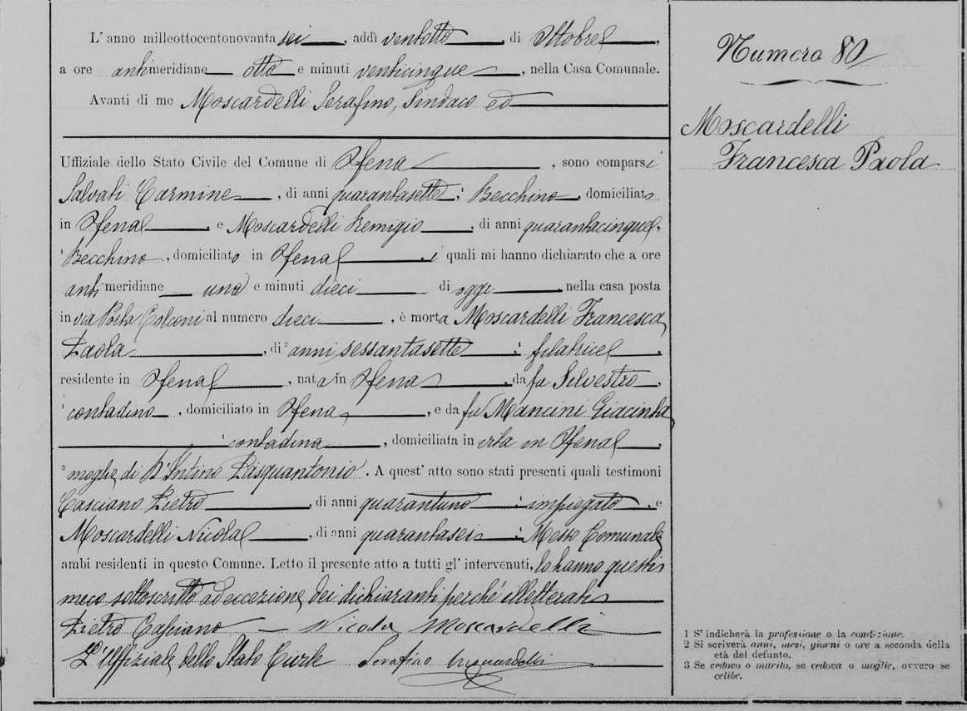 L'anno milleottocentonovanta sei, addì ventotto di Ottobre,
a ore antimeridiane otto e minuti venticinque, nella Casa Comunale.
Avanti di me Moscardelli Serafino, Sindaco ed
Uffiziale dello Stato Civile del Comune di Ofena, sono comparsi
Salvati Carmine, di anni quarantasette, ¹ Becchino, domiciliato
in Ofena, e Moscardelli Remigio, di anni quarantacinque,
¹ Becchino, domiciliato in Ofena, i quali mi hanno dichiarato che a ore
antimeridiane una e minuti dieci di oggi nella casa posta
in via Porta al numero dieci, è morta Moscardelli Francesca
Paola, di ² anni sessantasette, ¹ filatrice,
residente in Ofena, nata in Ofena, da fu Silvestro,
¹ contadino, domiciliato in Ofena, e da fu Mancini Giacinta
¹ contadina, domiciliata in vita in Ofena,
³ moglie di D'Intino Pasquantonio. A quest'atto sono stati presenti quali testimoni
Casciano Pietro, di anni quarantuno, ¹ impiegato, e
Moscardelli Nicola, di anni quarantasei, ¹ Messo Comunale
ambi residenti in questo Comune. Letto il presente atto a tutti gl'intervenuti, lo hanno questi
meco sottoscritto ad eccezione dei dichiaranti perché illetterati
Pietro Casciano — Nicola Moscardelli
L'Uffiziale dello Stato Civile Serafino Moscardelli
Numero 80
Moscardelli
Francesca Paola
1 S'indicherà la professione o la condizione.
2 Si scriverà anni, mesi, giorni o ore a seconda della
età del defunto.
3 Se vedovo o marito, se vedova o moglie, ovvero se
celibe.